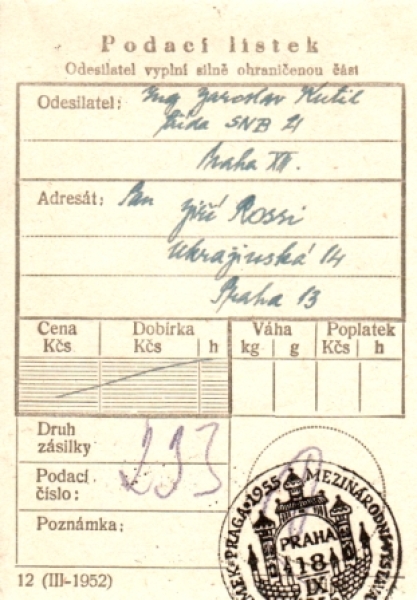 Podací lístek
Odesilatel vyplní silně ohraničenou část
Odesilatel: Ing Jaroslav Kutil
třída SNB 21
Praha XII.
Adresát: Pan
Jiří Rossi
Ukrajinská 14
Praha 13
Cena Dobírka Váha Poplatek
Kčs Kčs h kg g Kčs h
Druh
zásilky
Podací
číslo: 293
Poznámka:
PRAGA·1955 MEZINÁRODNÍ
PRAHA
18
IX
12 (III-1952)